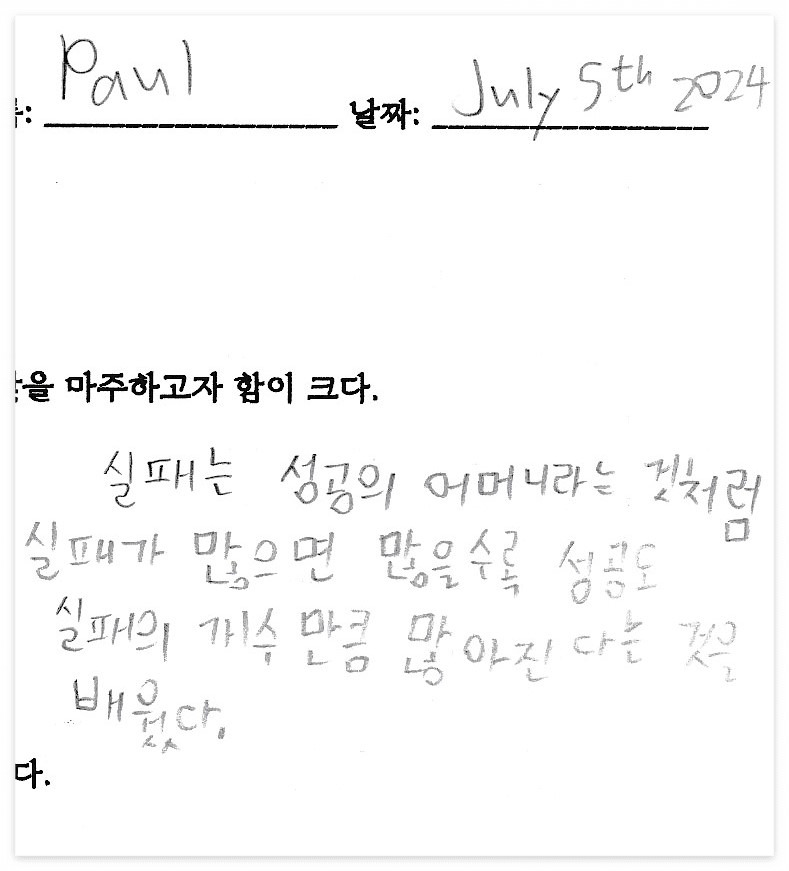 : Paul 날짜: July 5th 2024
을 마주하고자 함이 크다.
실패는 성공의 어머니라는 것처럼
실패가 많으면 많을수록 성공도
실패의 개수만큼 많아진다는 것을
배웠다.
다.